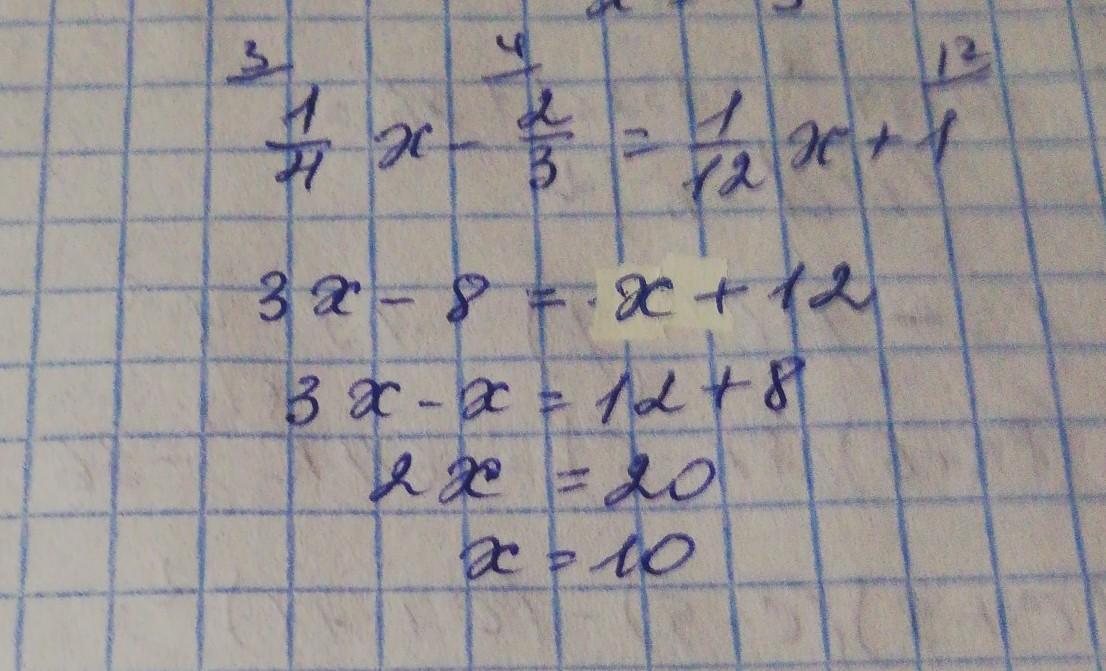 3 4 12
1/4 x - 2/3 = 1/12 x + 1
3x - 8 = x + 12
3x - x = 12 + 8
2x = 20
x = 10